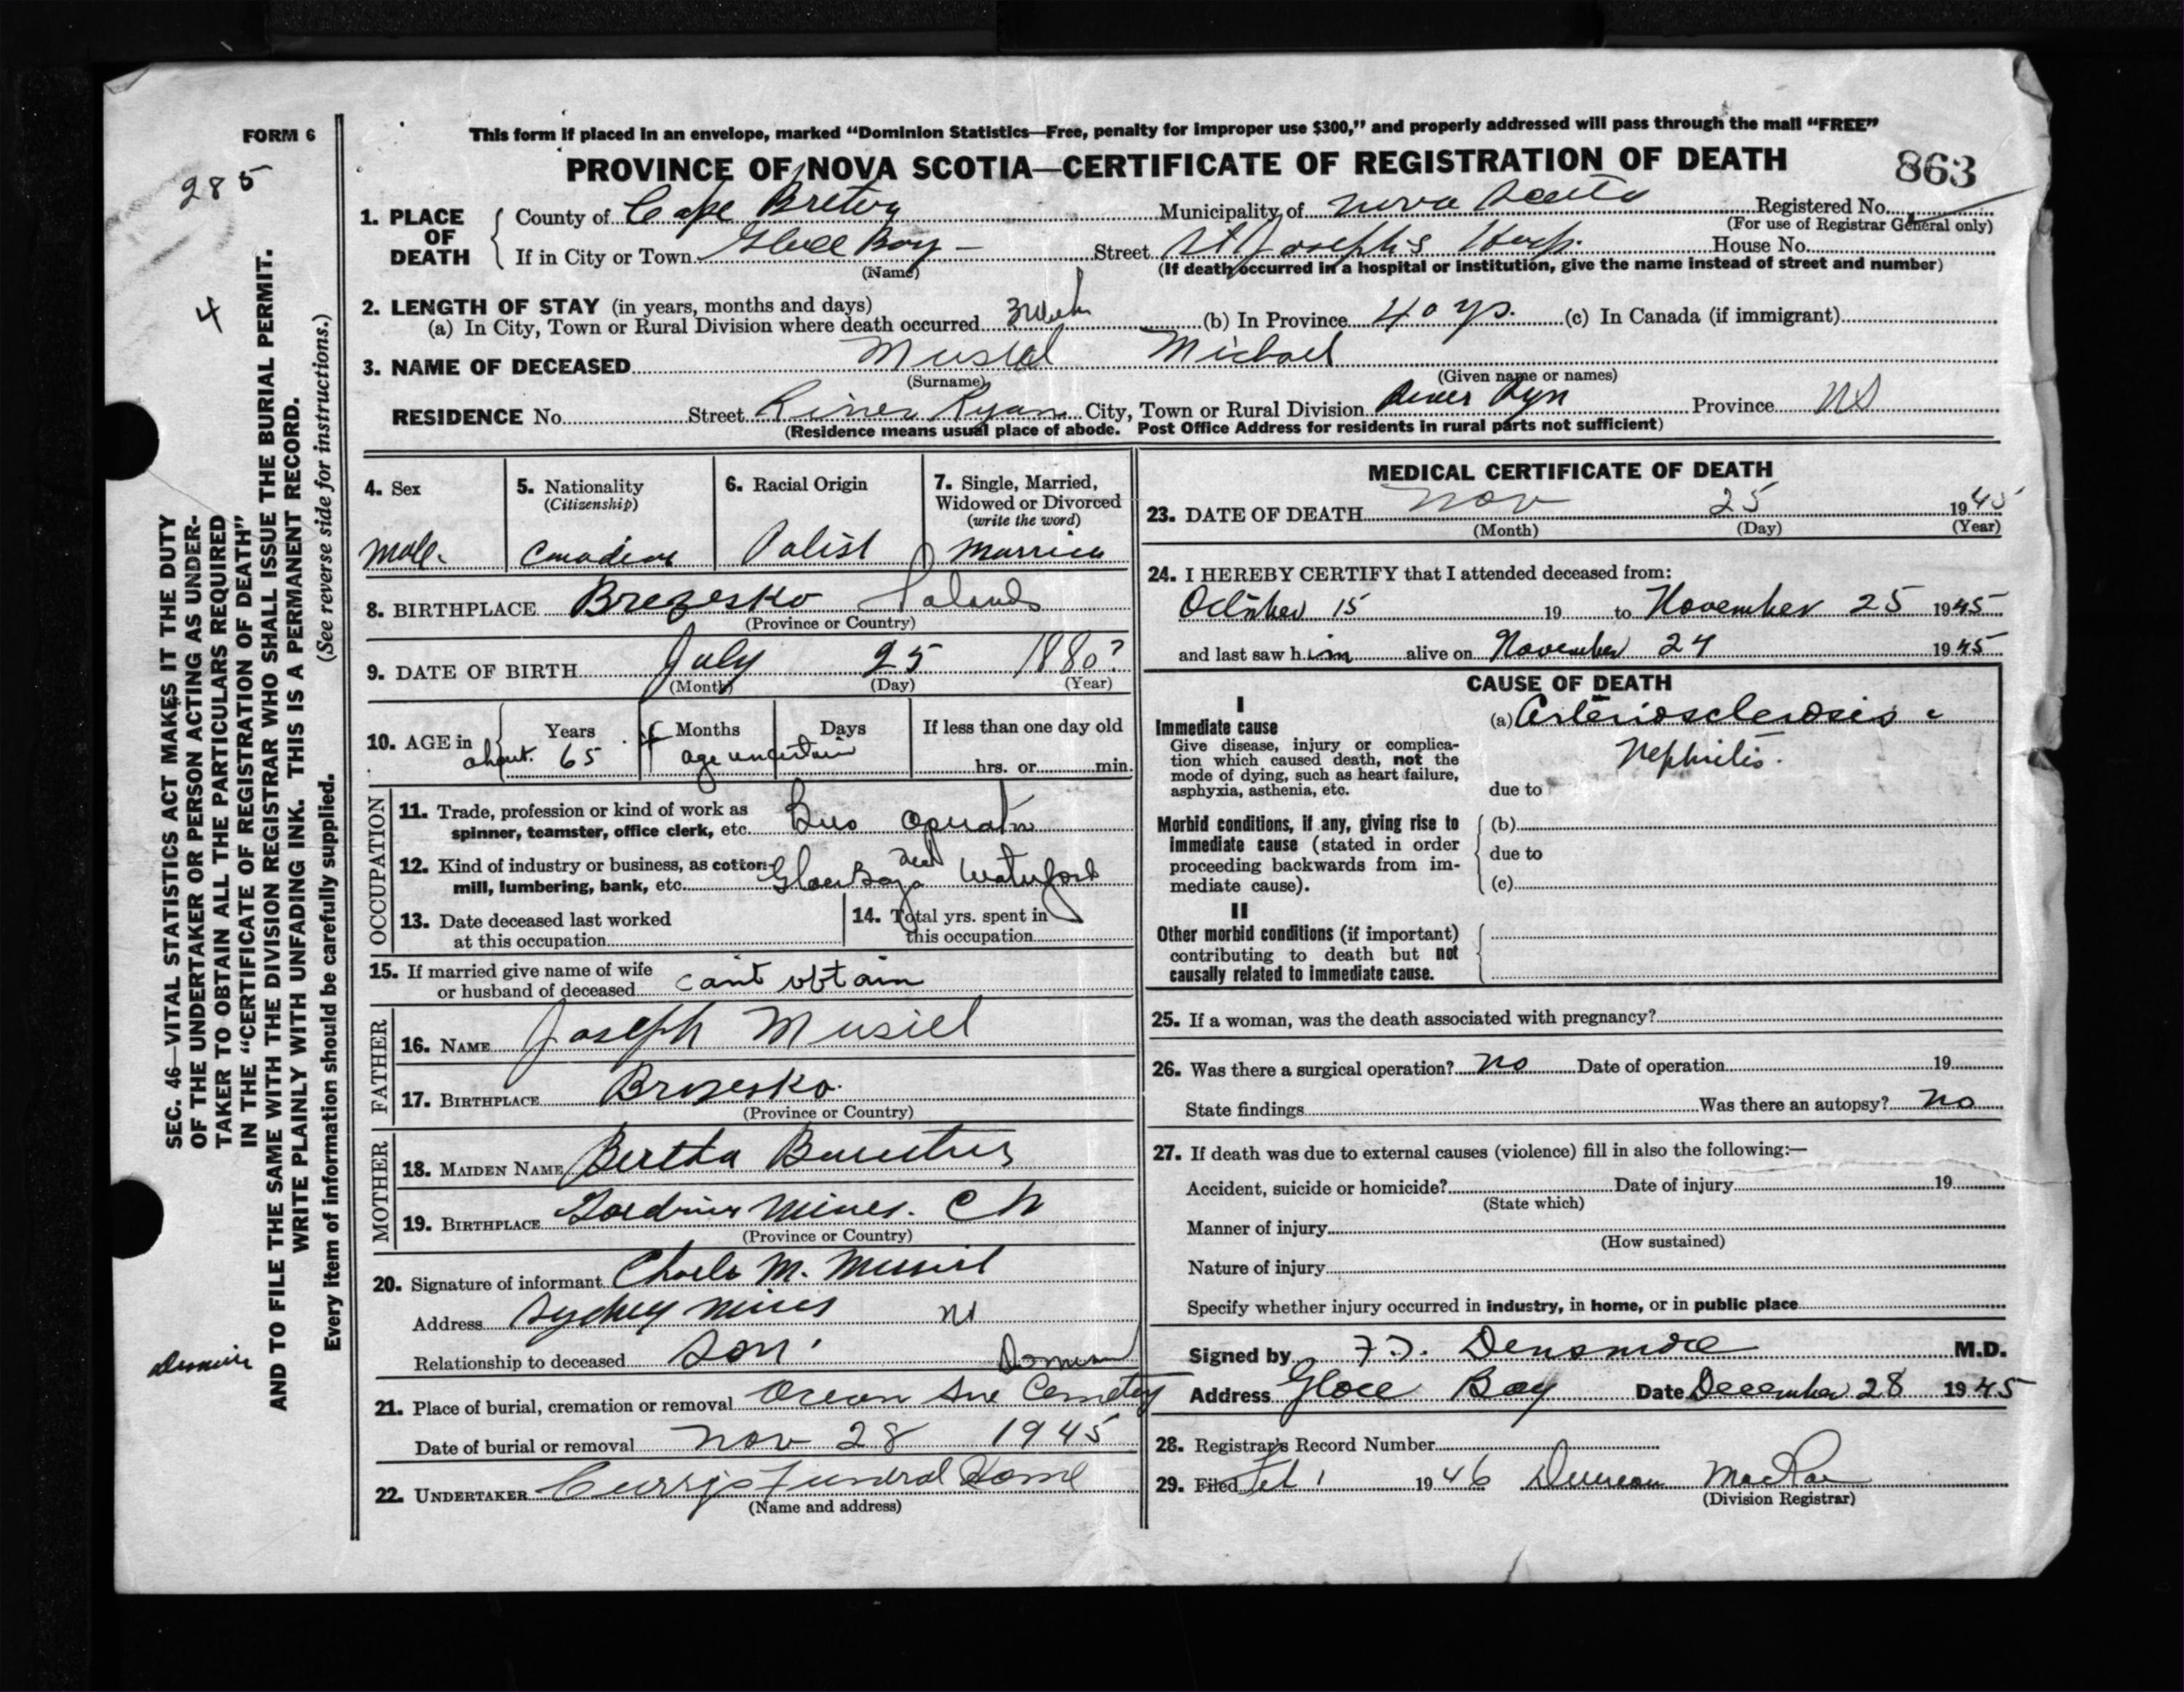 FORM 6
285
4
This form if placed in an envelope, marked “Dominion Statistics—Free, penalty for improper use $300,” and properly addressed will pass through the mail “FREE”
PROVINCE OF NOVA SCOTIA—CERTIFICATE OF REGISTRATION OF DEATH
863
1. PLACE OF DEATH
County of Cape Breton Municipality of Nova Scotia Registered No.
(For use of Registrar General only)
If in City or Town Glace Bay Street St Joseph's Hosp. House No.
(Name) (If death occurred in a hospital or institution, give the name instead of street and number)
2. LENGTH OF STAY (in years, months and days)
(a) In City, Town or Rural Division where death occurred 3 (b) In Province 40 (c) In Canada (if immigrant)
3. NAME OF DECEASED Musial Michael
(Surname) (Given name or names)
RESIDENCE No. Street River Ryan City, Town or Rural Division River Ryn Province NS
(Residence means usual place of abode. Post Office Address for residents in rural parts not sufficient)
4. Sex
Male
5. Nationality
(Citizenship)
Canadian
6. Racial Origin
Polish
7. Single, Married,
Widowed or Divorced
(write the word)
Married
8. BIRTHPLACE Brezesko Poland
(Province or Country)
9. DATE OF BIRTH July 25 1880?
(Month) (Day) (Year)
10. AGE in Years Months Days If less than one day old
about 65 age uncertain hrs. or min.
OCCUPATION
11. Trade, profession or kind of work as
spinner, teamster, office clerk, etc. Bus Operator
12. Kind of industry or business, as cotton-
mill, lumbering, bank, etc. Glace Bay and Waterford
13. Date deceased last worked
at this occupation
14. Total yrs. spent in
this occupation
15. If married give name of wife
or husband of deceased can't obtain
FATHER
16. NAME Joseph Musiel
17. BIRTHPLACE Brozesko
(Province or Country)
MOTHER
18. MAIDEN NAME Bertha
19. BIRTHPLACE Gardiner Mines.
(Province or Country)
20. Signature of informant M.
Address Sydney Mines NS
Relationship to deceased Son
21. Place of burial, cremation or removal Ocean Ave Cemetery
Date of burial or removal Nov 28 1945
22. UNDERTAKER Currys Funeral Home
(Name and address)
MEDICAL CERTIFICATE OF DEATH
23. DATE OF DEATH Nov 25 1945
(Month) (Day) (Year)
24. I HEREBY CERTIFY that I attended deceased from:
October 15 19 to November 25 1945
and last saw him alive on November 24 1945
CAUSE OF DEATH
I
Immediate cause
Give disease, injury or complica-
tion which caused death, not the
mode of dying, such as heart failure,
asphyxia, asthenia, etc.
(a) Arteriosclerosis c
Nephritis.
due to
Morbid conditions, if any, giving rise to
immediate cause (stated in order
proceeding backwards from im-
mediate cause).
(b)
due to
(c)
II
Other morbid conditions (if important)
contributing to death but not
causally related to immediate cause.
25. If a woman, was the death associated with pregnancy?
26. Was there a surgical operation? No Date of operation 19
State findings Was there an autopsy? No
27. If death was due to external causes (violence) fill in also the following:—
Accident, suicide or homicide? Date of injury 19
(State which)
Manner of injury
(How sustained)
Nature of injury
Specify whether injury occurred in industry, in home, or in public place
Signed by Densmore M.D.
Address Glace Bay Date December 28 1945
28. Registrar's Record Number
29. Filed Feb 1 1946 Duncan MacRae
(Division Registrar)
SEC. 46—VITAL STATISTICS ACT MAKES IT THE DUTY
OF THE UNDERTAKER OR PERSON ACTING AS UNDER-
TAKER TO OBTAIN ALL THE PARTICULARS REQUIRED
IN THE “CERTIFICATE OF REGISTRATION OF DEATH”
AND TO FILE THE SAME WITH THE DIVISION REGISTRAR WHO SHALL ISSUE THE BURIAL PERMIT.
WRITE PLAINLY WITH UNFADING INK. THIS IS A PERMANENT RECORD.
(See reverse side for instructions.)
Every item of information should be carefully supplied.